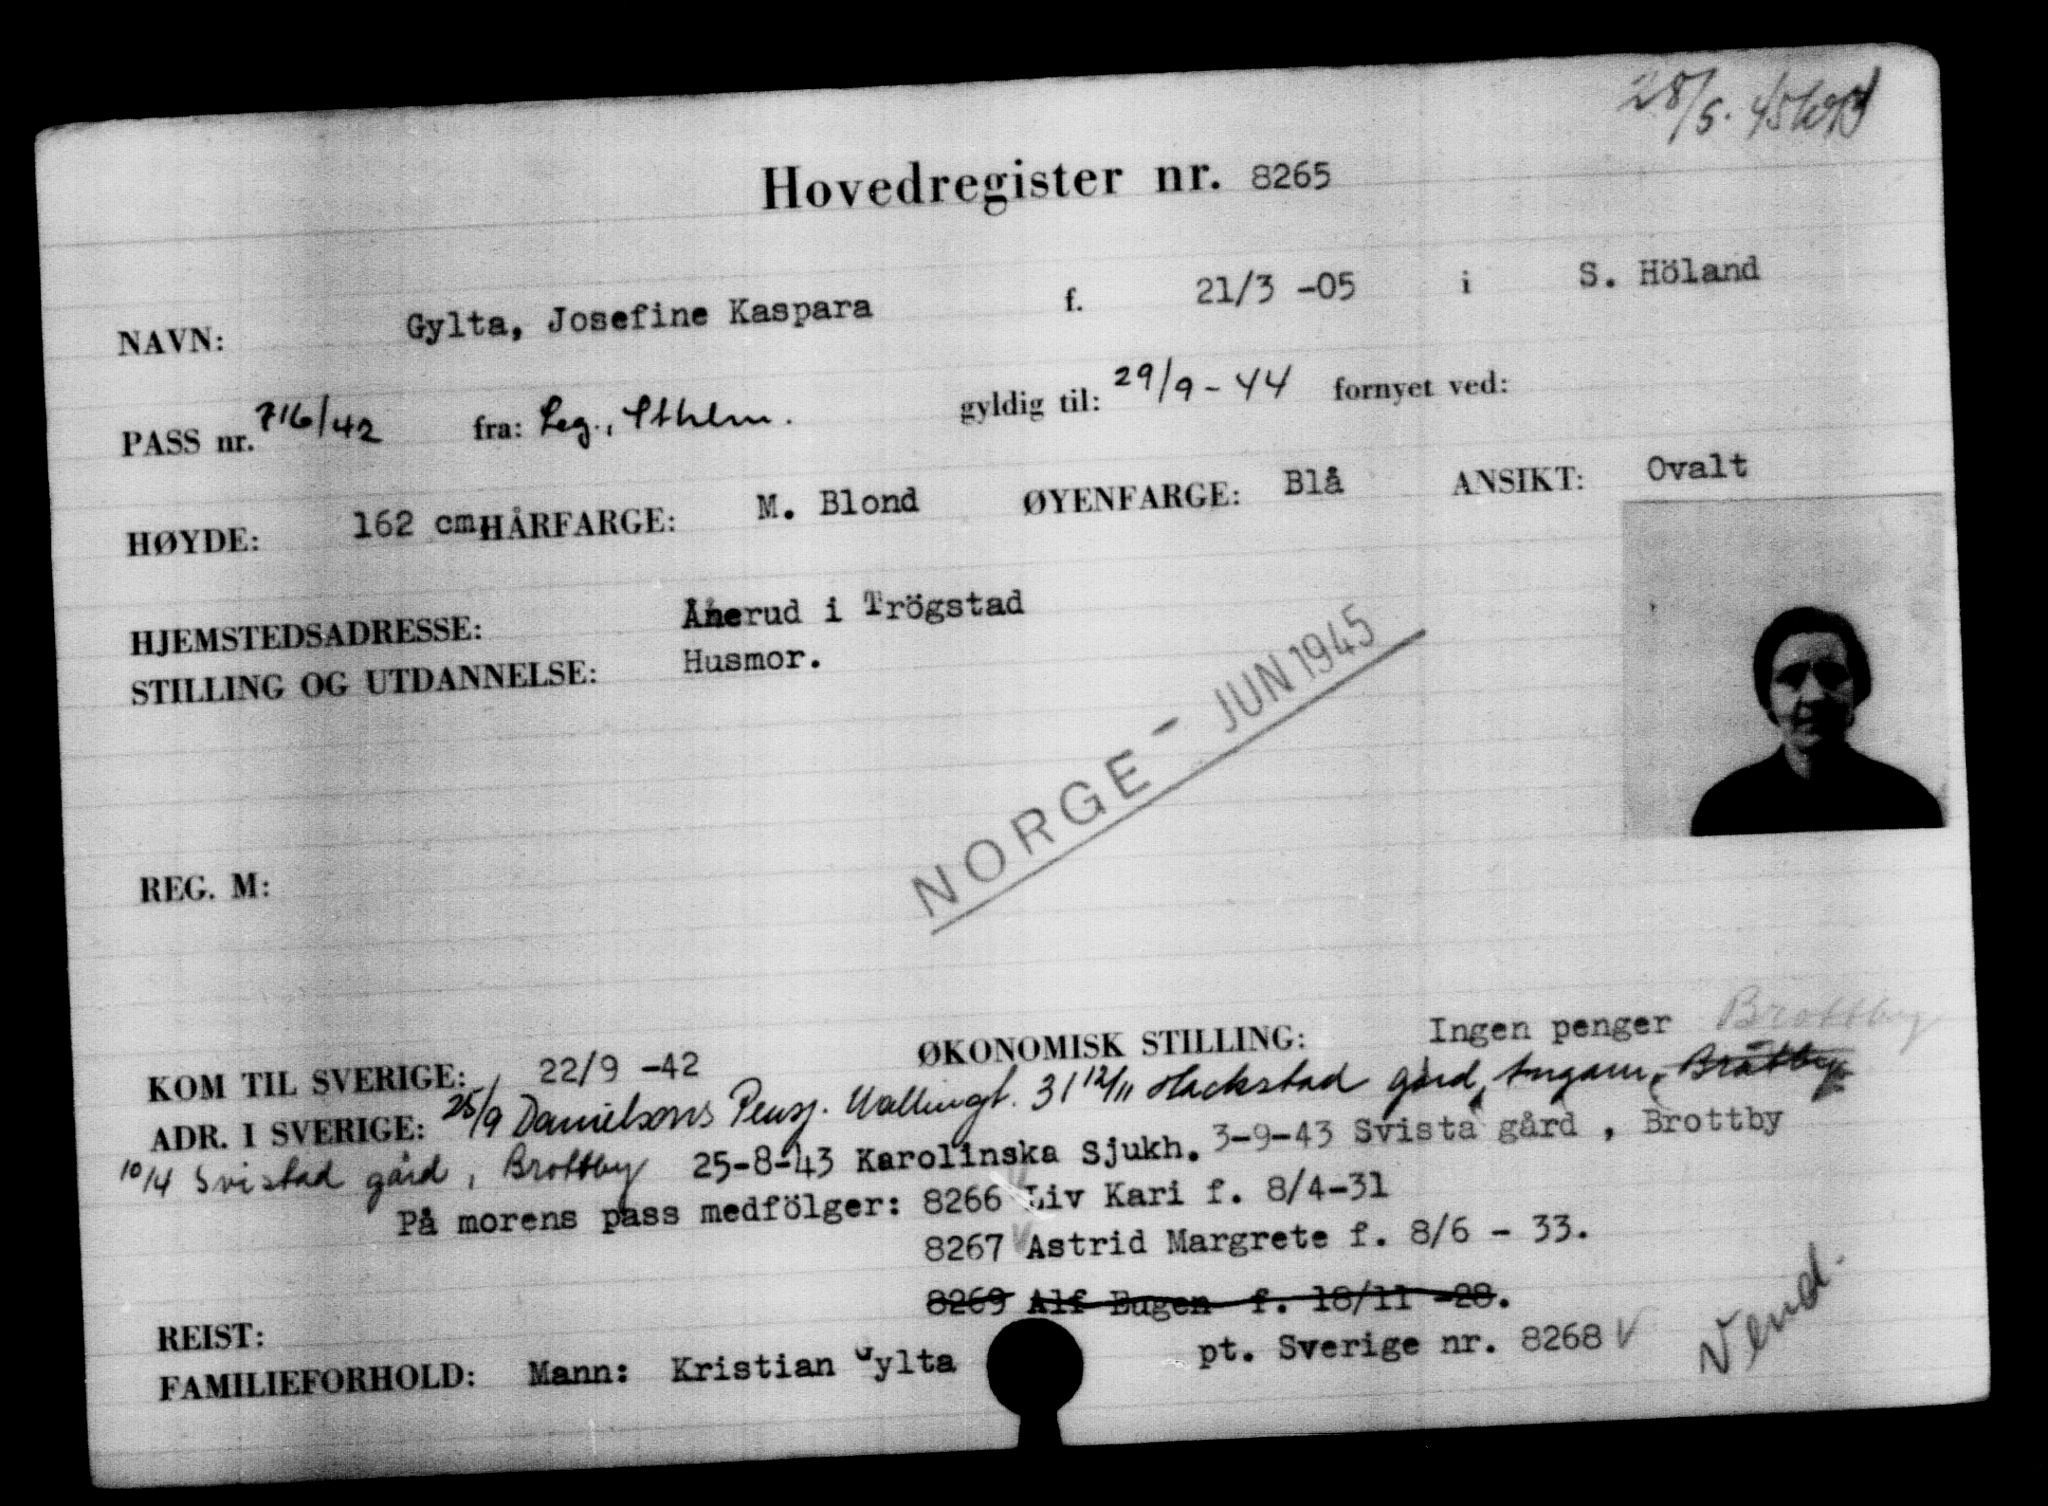 28/5. 45
Hovedregister nr. 8265
NAVN: Gylta, Josefine Kaspara f. 21/3 -05 i S. Höland
PASS nr. 716/42 fra: Leg., Sthlm. gyldig til: 29/9 - 44 fornyet ved:
HØYDE: 162 cm. HÅRFARGE: M. Blond ØYENFARGE: Blå ANSIKT: Ovalt
HJEMSTEDSADRESSE: Ånerud i Trögstad
STILLING OG UTDANNELSE: Husmor.
NORGE - JUN 1945
REG. M:
KOM TIL SVERIGE: 22/9 -42 ØKONOMISK STILLING: Ingen penger Brottby
ADR. I SVERIGE: 25/9 Danielsons Pensj. Wallingt. 31 12/11 Hackstad gård, Angarn, Bråtby
10/4 Svistad gård, Brottby 25-8-43 Karolinska Sjukh. 3-9-43 Svista gård , Brottby
På morens pass medfölger: 8266 Liv Kari f. 8/4-31
8267 Astrid Margrete f. 8/6 - 33.
8269 Alf Eugen f. 18/11 -28.
REIST:
FAMILIEFORHOLD: Mann: Kristian Gylta pt. Sverige nr. 8268
Vend.